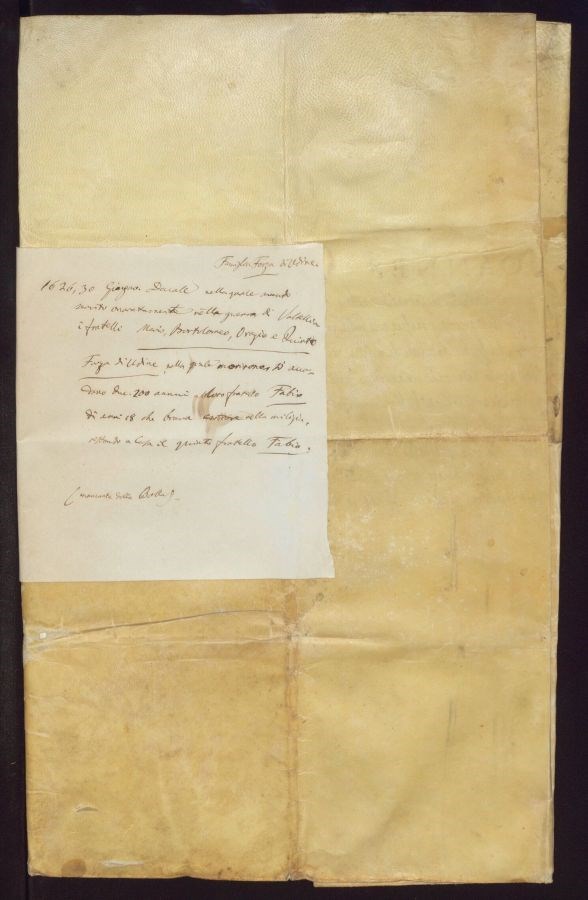 Famiglia Forza di Udine
1626, 30 Giugno. Ducale nella quale avendo
servito onoratamente nella guerra di Valtellina
i fratelli Mario, Bortolomeo, Orazio e
Forza di Udine, nella quale morirono, si accor-
dano duc. 200 annui al loro fratello Fabio
di anni 18 che brama entrare nella milizia,
restando a Casa il quinto fratello Fabio.
(mancante della Bolla).